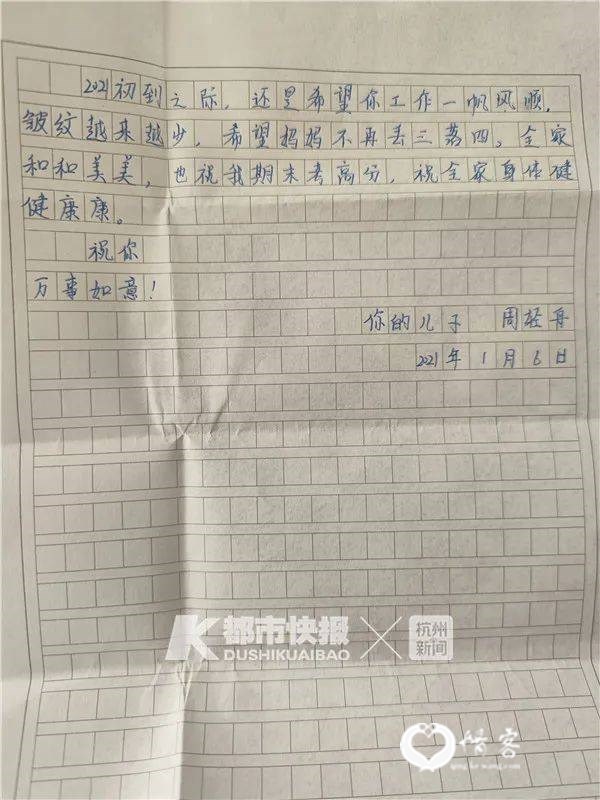 2021初到之际，还是希望你工作一帆风顺，
皱纹越来越少，希望妈妈不再丢三落四。全家
和和美美，也祝我期末考高分，祝全家身体健
健康康。
祝你
万事如意！
你的儿子 周轻舟
2021年1月6日
都市快报
DUSHIKUAIBAO
杭州
新闻
情客